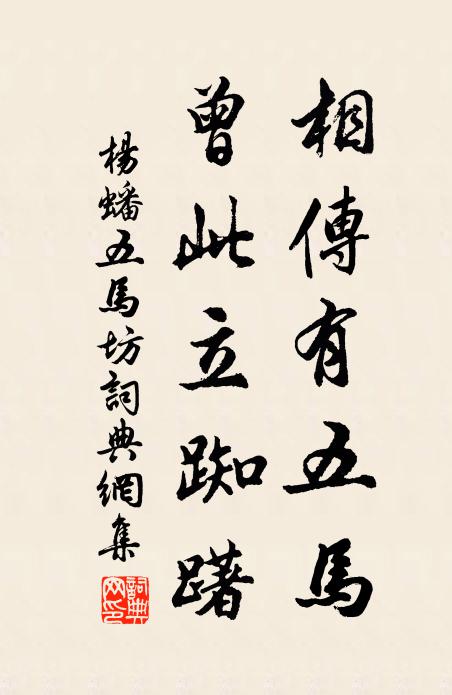 相傳有五馬
曾此立踟躇
楊蟠五馬坊詞典網集
詞典
网印